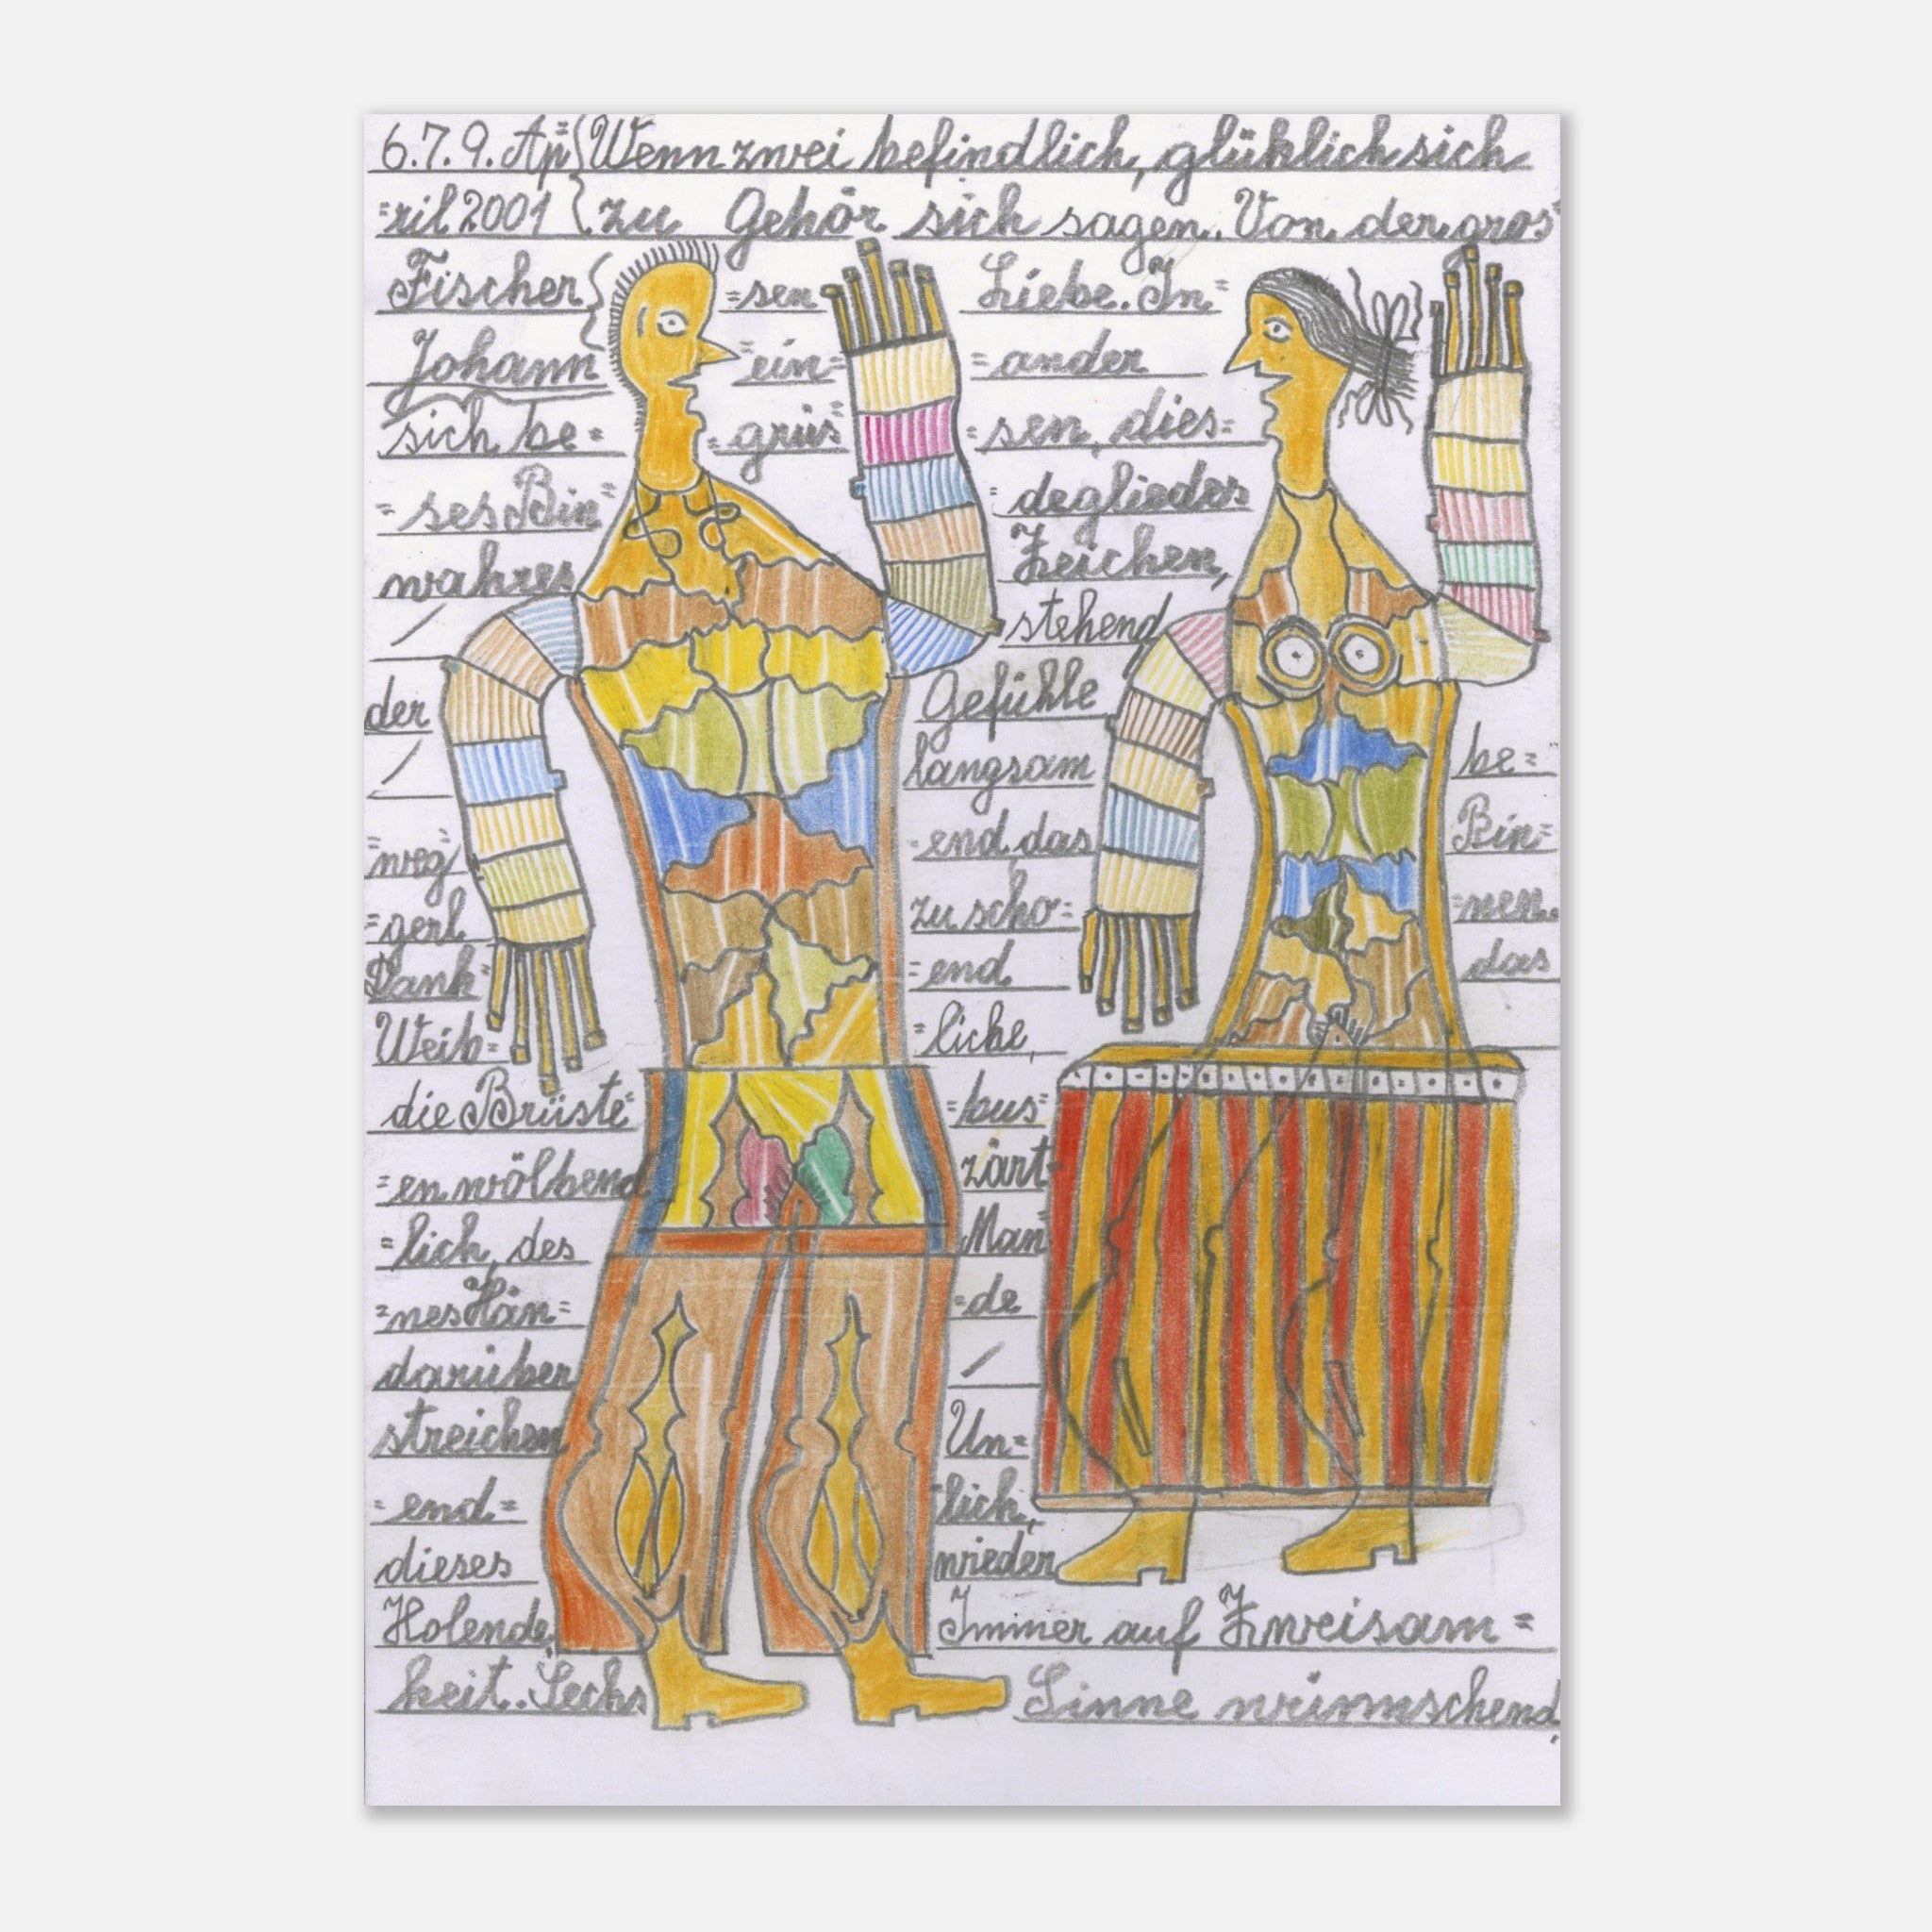 6.7.9. Ap= Wenn zwei befindlich, glüklich sich
=ril 2001 zu Gehör sich sagen. Von der gros=
Fischer =sen Liebe. In=
Johann =ein= =ander
sich be= =grüs= =sen, dies=
=ses Bin= =degliedes
wahres Zeichen,
/ stehend
der Gefühle
/ langsam be=
=weg= =end, das Bin=
=gerl zu scho= =nen.
Dank= =end das
Weib= =liche,
die Brüste= =bus=
=en wölbend zärt=
=lich, des Man=
=nes Hän= =de
darüber /
streichen Un=
=end= =lich,
dieses wieder
Holende, Immer auf Zweisam=
keit. Sechs Sinne